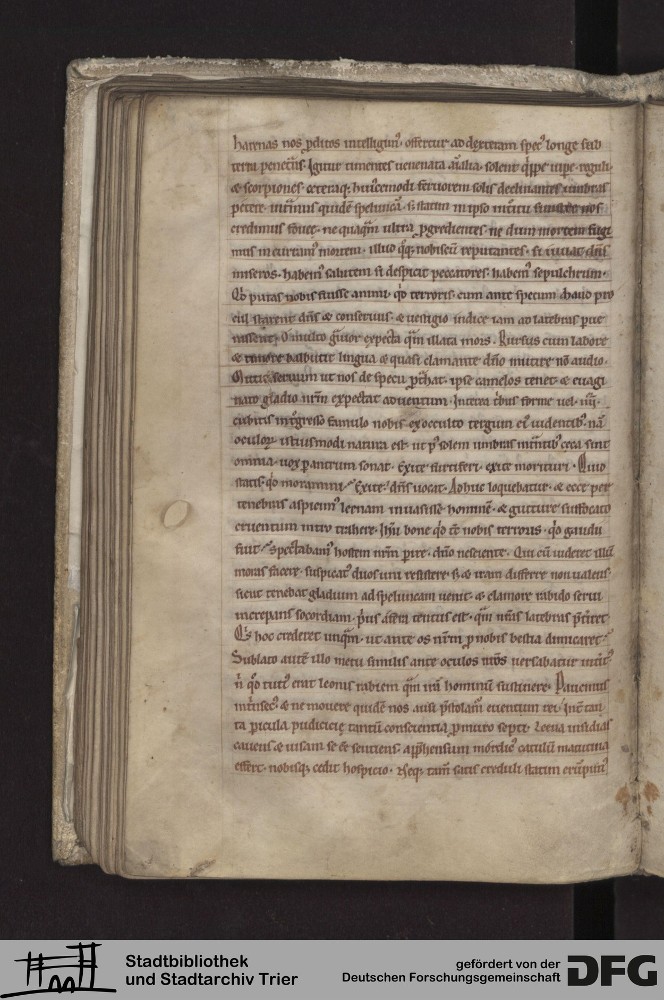 harenas nos p̱ditos intelligim᾿. offertur ad dexteram spec᾿ longe sub
terra penetrās. Igitur timentes uenenata aīalia. solent q̇ipe uipe. reguli.
& scorpiones. ceteraq; hui᾿cemodi feruorem solis declinantes umbras
petere. intᷓuim᾿ quidē speluncā. s; statim in ipso introitu sinistre nos
credimus fouee. ne quaquā ultra ꝓgredientes. ne dum mortem fugi
mus incurram᾿ mortem. illud q;q; nobiscū reputantes. si iuuat dn̄s
miseros. habem᾿ salutem. si despicit peccatores. habem᾿ sepulchrum.
Qd̄ putas nobis fuisse animi. qd̄ terroris. cum ante specum haud pro
cul starent dn̄s & conseruus. & uestigio indice iam ad latebras pue
nissent. O multo gᷓuior expecta q̄m illata mors. Rursus cum labore
& timore balbutit lingua & quasi clamante dn̄o mutire nō audio.
Mittit seruum ut nos de specu ꝓt̄hat. ipse camelos tenet. & euagi
nato gladio nr̄m expectat aduentum. Interea trib᾿ ferme uel. iiii.
cubitis ingresso famulo nobis ex occulto tergum ei᾿ uidentib᾿. nā
oculoꝝ istiusmodi natura est. ut p᾿ solem umbras intrᷓntib᾿ ceca sint
omnia. uox p̱ antrum sonat. Exite furciferi. exite morituri. Quid
statis. qd̄ moramini. Exite. dn̄s uocat. Adhuc loquebatur. & ecce per
tenebras aspicim᾿ leenam inuasisse hominē. & gutture suffocato
cruentum intro trahere. Ih̄u bone qd̄ tc̄ nobis terroris. qd̄ gaudii
fuit. Spectabam᾿ hostem nr̄m p̱ire. dn̄o nesciente. Qui cū uideret illū
moras facere. suspicat᾿ duos uni resistere. s; & iram differre non ualens.
sicut tenebat gladium ad speluncam uenit. & clamore rabido serui
increpans socordiam. p᾿us a fera tentus est. quā nr̄as latebras pt̄iret.
Qis hoc crederet unqᷓm. ut ante os nr̄m ꝓ nobis bestia dimicaret.
Sublato autē illo metu similis ante oculos nr̄os uersabatur intit᾿.
n̄ qd̄ tuti᾿ erat leonis rabiem quā irā hominū sustinere. Pauemus
intrᷓnsec᾿. & ne mouere quidē nos ausi p̄stolam᾿ euentum rei. Int̄ tan
ta picula. pudicicie tantū conscientia ꝓ muro septi. Leena insidias
cauens. & uisam se ē᷒e sentiens. app̱hensum mordic᾿ catulū matutina
effert. nobisq; cedit hospicio. Neq; tam̄ satis creduli statim erūpim᾿.
Stadtbibliothek
und Stadtarchiv Trier
gefördert von der
Deutschen Forschungsgemeinschaft
DFG